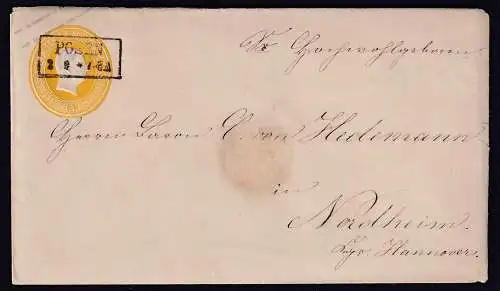 POSEN
2 9 * 7-8A
Sr Hochwohlgeboren
Herrn Baron C. von Hedemann
in
Nordheim.
Kgr. Hannover.